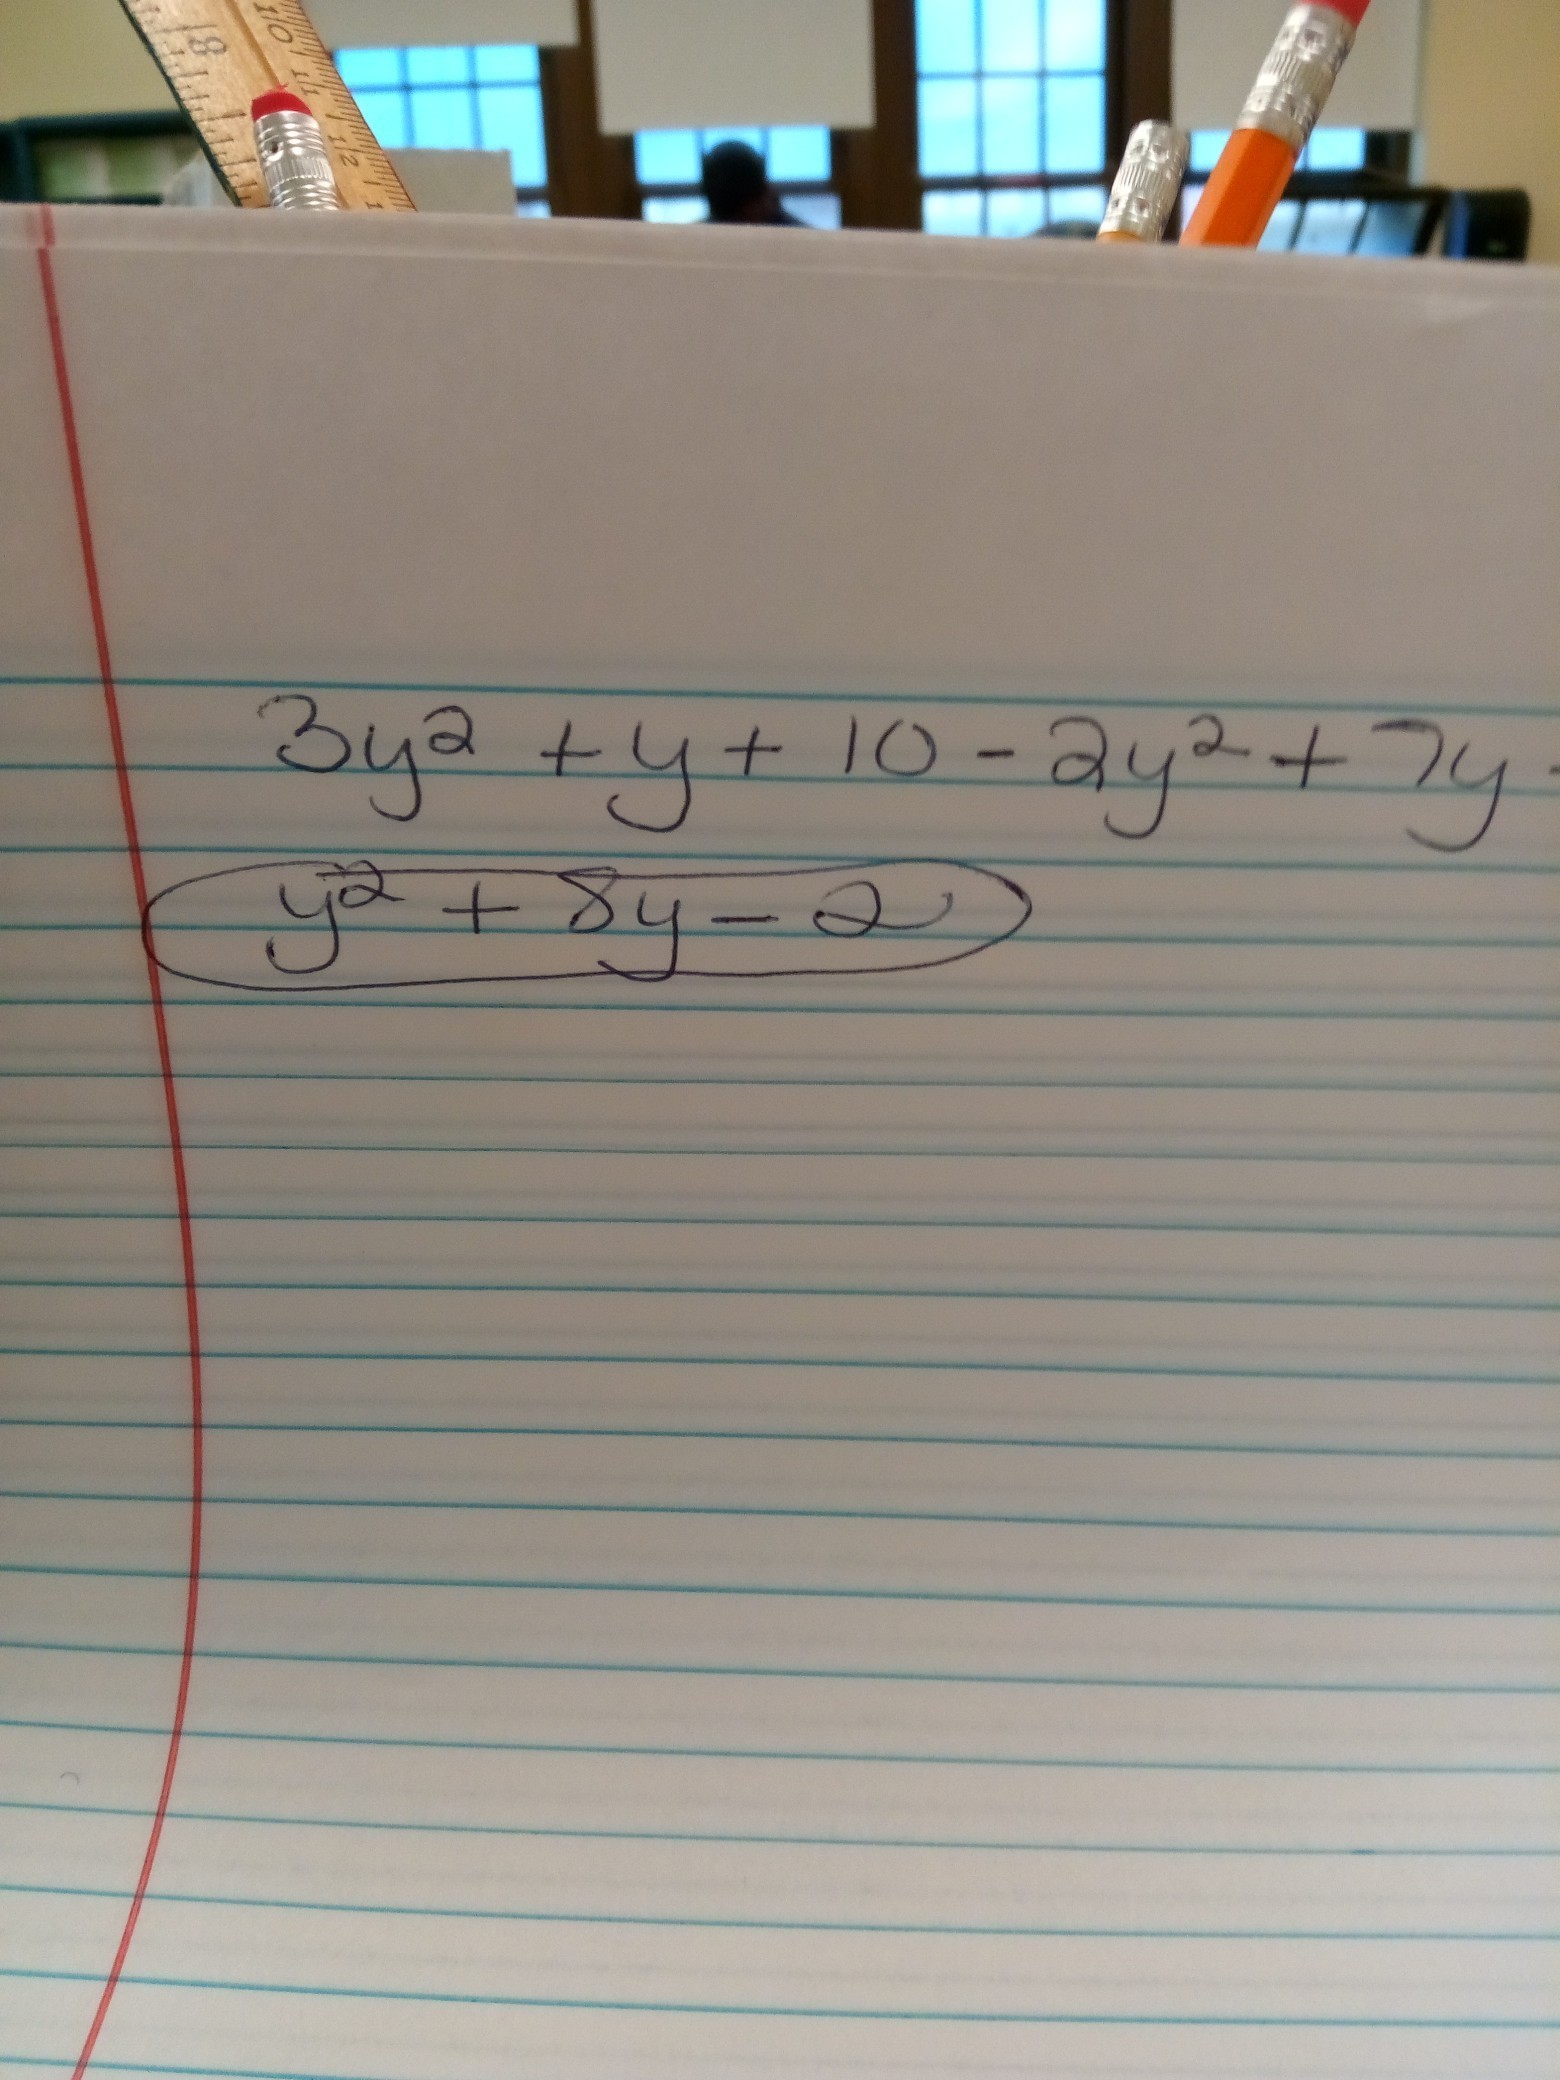 8 10 11 12 1
3y² + y + 10 - 2y² + 7y -
y² + 8y - 2